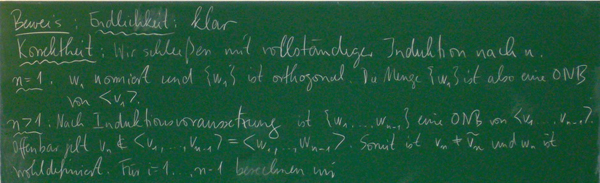 Beweis: Endlichkeit: klar
Korrektheit: Wir schließen mit vollständiger Induktion nach n.
n=1. w₁ normiert und {w₁} ist orthogonal. Die Menge {w₁} ist also eine ONB
von <v₁>.
n>1: Nach Induktionsvoraussetzung ist {w₁, ... wₙ₋₁} eine ONB von <v₁ ... vₙ₋₁>.
Offenbar gilt vₙ ∉ <v₁, ..., vₙ₋₁> = <w₁, .., wₙ₋₁>. Somit ist vₙ ≠ ṽₙ und wₙ ist
wohldefiniert. Für i=1...,n-1 berechnen wir